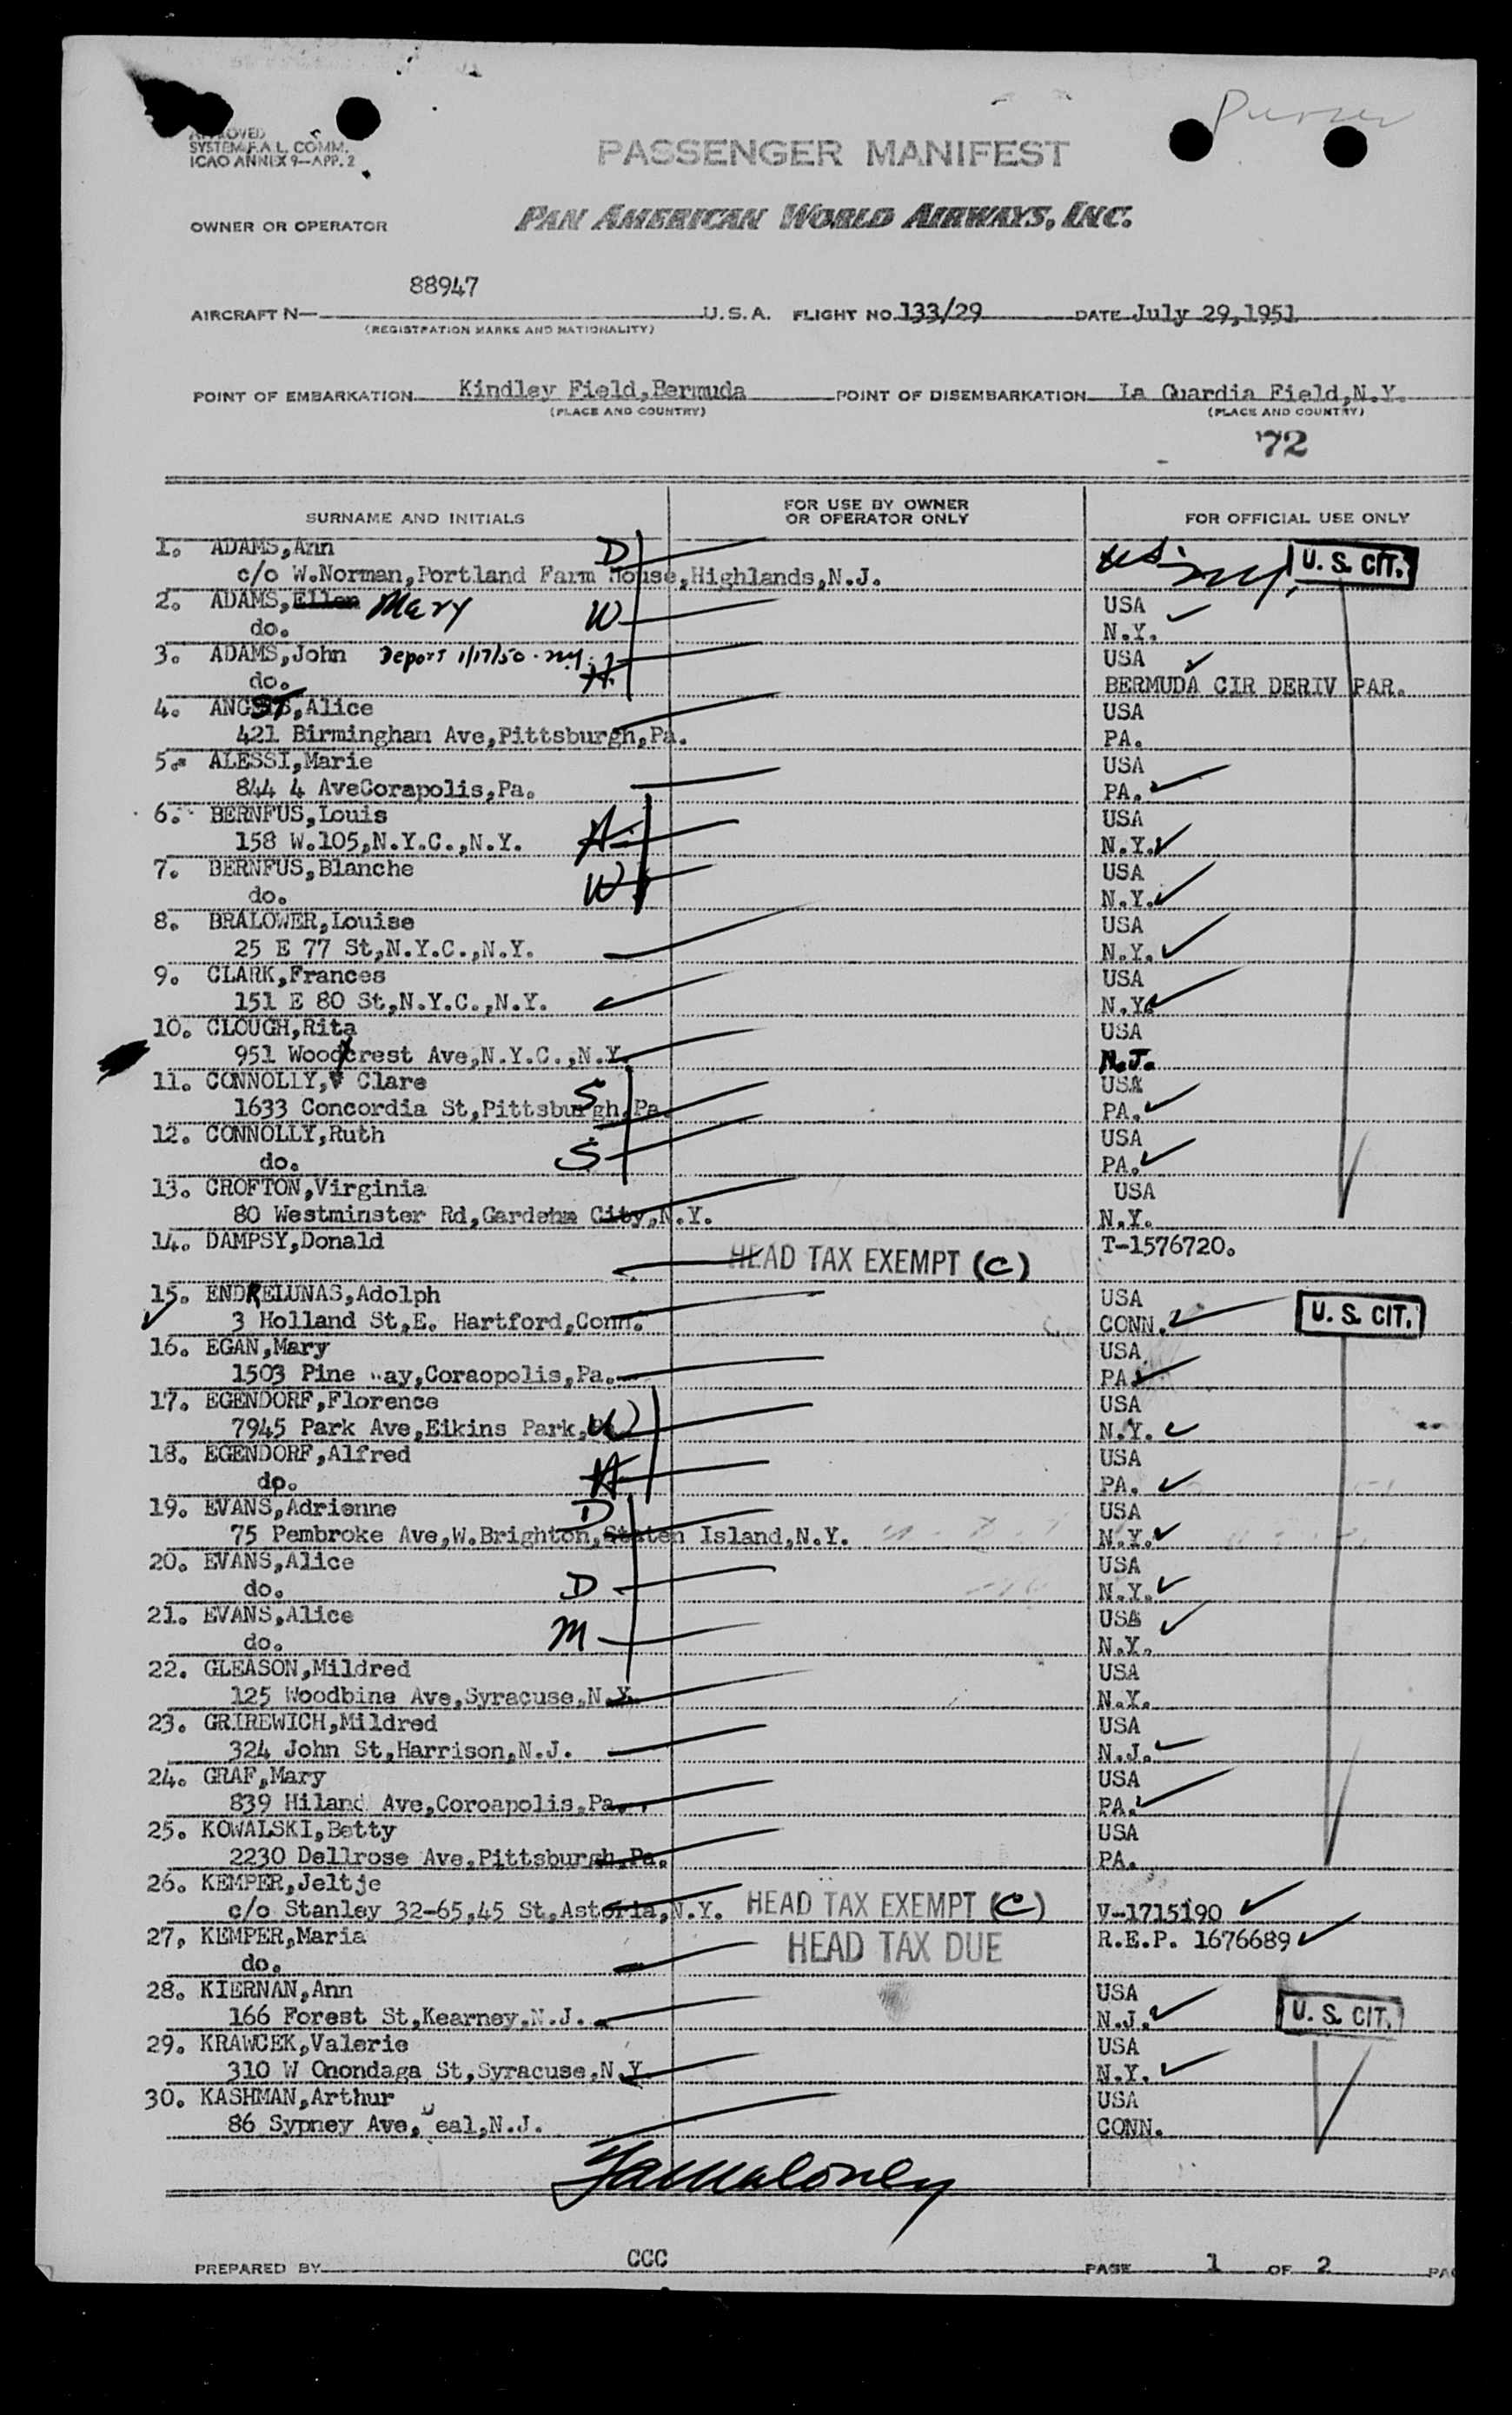 Purser
APPROVED
SYSTEM F.A.L. COMM.
ICAO ANNEX 9—APP. 2
PASSENGER MANIFEST
OWNER OR OPERATOR PAN AMERICAN WORLD AIRWAYS, INC.
88947
AIRCRAFT N— U.S.A. FLIGHT NO. 133/29 DATE July 29,1951
(REGISTRATION MARKS AND NATIONALITY)
POINT OF EMBARKATION Kindley Field,Bermuda POINT OF DISEMBARKATION La Guardia Field,N.Y.
(PLACE AND COUNTRY) (PLACE AND COUNTRY)
72
SURNAME AND INITIALS FOR USE BY OWNER OR OPERATOR ONLY FOR OFFICIAL USE ONLY
1. ADAMS,Ann D U. S. CIT.
c/o W.Norman,Portland Farm House,Highlands,N.J.
2. ADAMS,Ellen Mary W USA
do. N.Y.
3. ADAMS,John Deport 1/17/50 - NY. USA
do. H BERMUDA CIR DERIV PAR.
4. ANGSTS,Alice USA
421 Birmingham Ave,Pittsburgh,Pa. PA.
5. ALESSI,Marie USA
844 4 AveCorapolis,Pa. PA.
6. BERNFUS,Louis USA
158 W.105,N.Y.C.,N.Y. H N.Y.
7. BERNFUS,Blanche USA
do. W N.Y.
8. BRALOWER,Louise USA
25 E 77 St,N.Y.C.,N.Y. N.Y.
9. CLARK,Frances USA
151 E 80 St,N.Y.C.,N.Y. N.Y.
10. CLOUGH,Rita USA
951 Woodcrest Ave,N.Y.C.,N.Y. N.J.
11. CONNOLLY, Clare S USA
1633 Concordia St,Pittsburgh,Pa. PA.
12. CONNOLLY,Ruth USA
do. S PA.
13. CROFTON,Virginia USA
80 Westminster Rd,Gardehm City,N.Y. N.Y.
14. DAMPSY,Donald HEAD TAX EXEMPT (C) T-1576720.
15. ENDRELUNAS,Adolph USA U. S. CIT.
3 Holland St,E. Hartford,Conn. CONN.
16. EGAN,Mary USA
1503 Pine Way,Coraopolis,Pa. PA.
17. EGENDORF,Florence USA
7945 Park Ave,Elkins Park,Pa. W N.Y.
18. EGENDORF,Alfred USA
do. H PA.
19. EVANS,Adrienne D USA
75 Pembroke Ave,W.Brighton,Staten Island,N.Y. N.Y.
20. EVANS,Alice USA
do. D N.Y.
21. EVANS,Alice USA
do. M N.Y.
22. GLEASON,Mildred USA
125 Woodbine Ave,Syracuse,N.Y. N.Y.
23. GRIREWICH,Mildred USA
324 John St,Harrison,N.J. N.J.
24. GRAF,Mary USA
839 Hiland Ave,Coroapolis,Pa. PA.
25. KOWALSKI,Betty USA
2230 Dellrose Ave,Pittsburgh,Pa. PA.
26. KEMPER,Jeltje
c/o Stanley 32-65,45 St,Astoria,N.Y. HEAD TAX EXEMPT (C) V-1715190
27. KEMPER,Maria HEAD TAX DUE R.E.P. 1676689
do.
28. KIERNAN,Ann USA U. S. CIT.
166 Forest St,Kearney,N.J. N.J.
29. KRAWCEK,Valerie USA
310 W Onondaga St,Syracuse,N.Y. N.Y.
30. KASHMAN,Arthur USA
86 Sypney Ave, Deal,N.J. CONN.
PREPARED BY CCC PAGE 1 OF 2